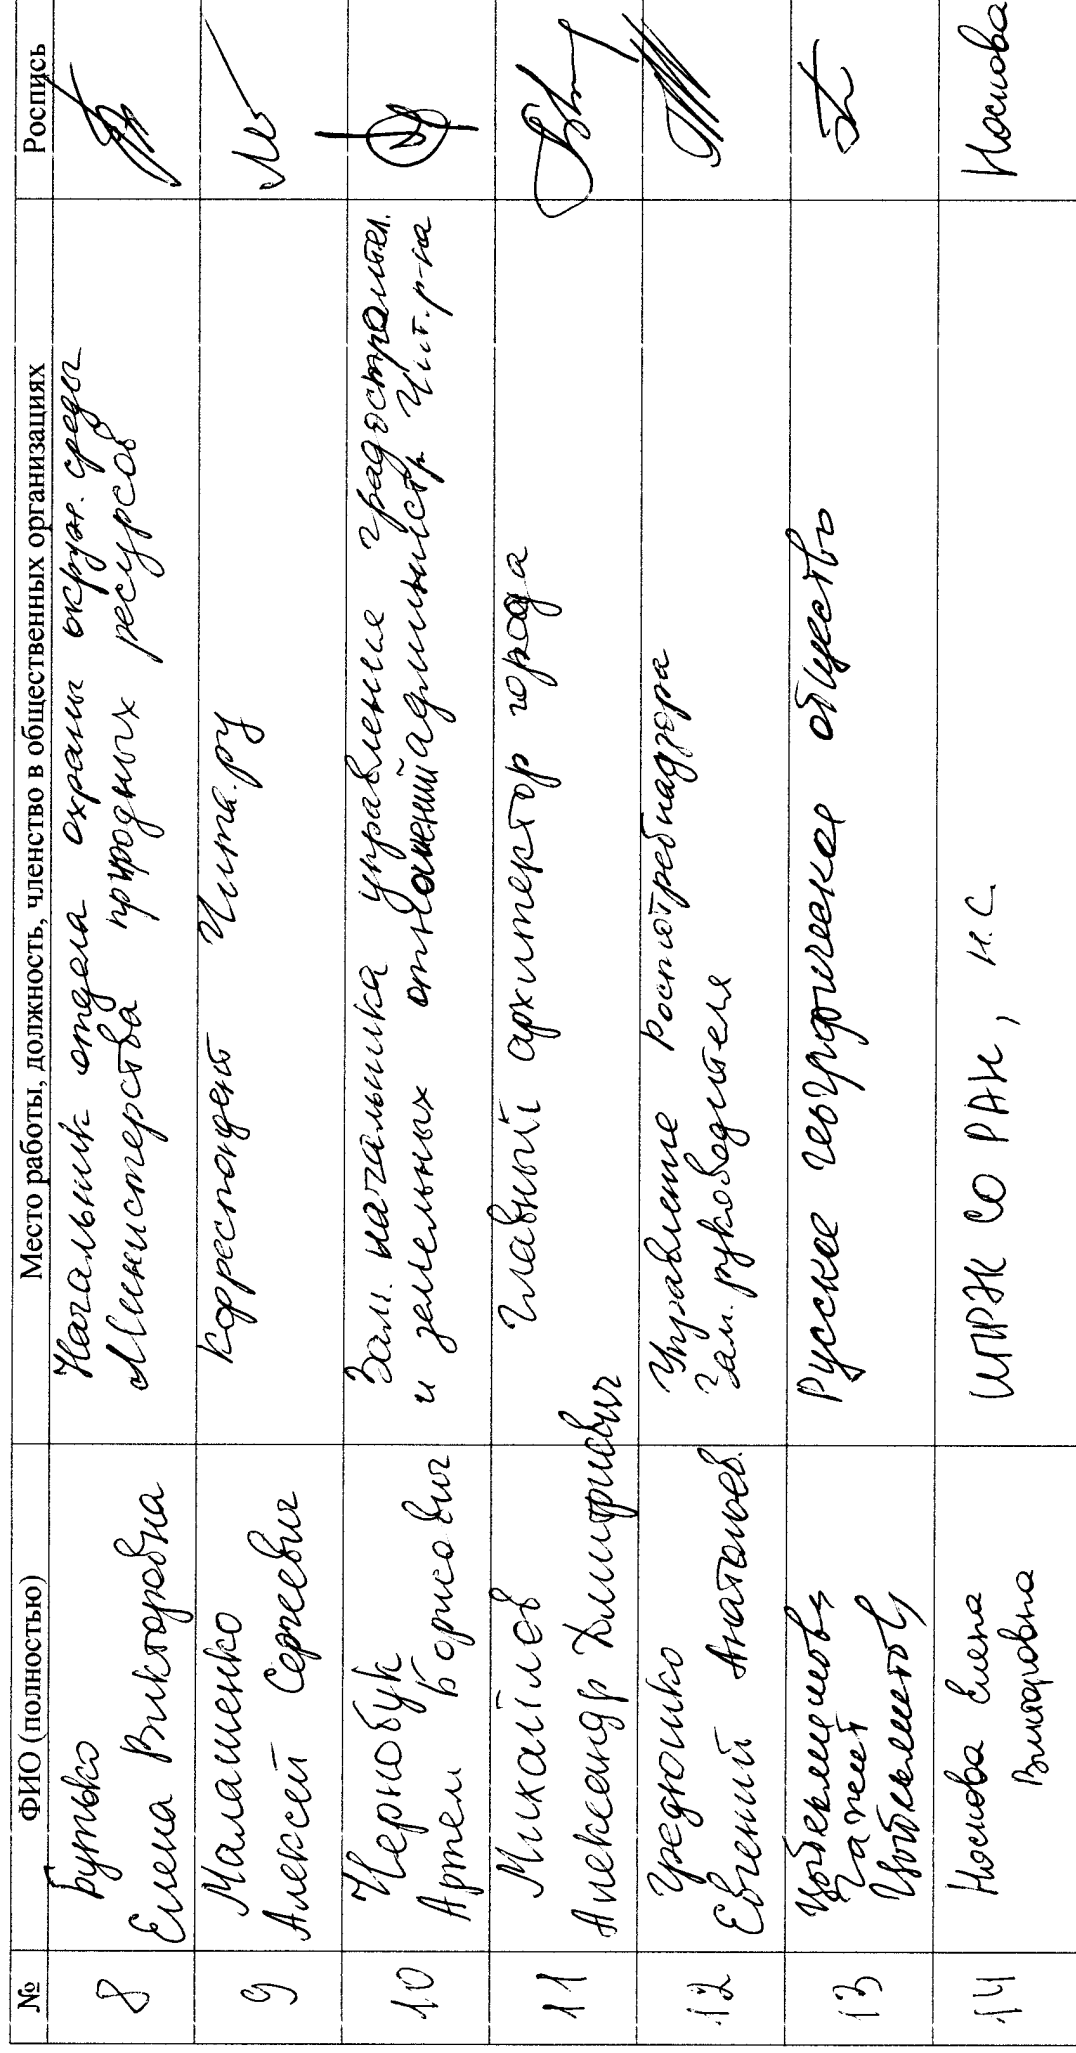 № ФИО (полностью) Место работы, должность, членство в общественных организациях Роспись
8
Бутько
Елена Викторовна
Начальник отдела охраны окруж. среды
Министерства природных ресурсов
9
Малашенко
Алексей Сергеевич
корреспондент Чита.ру
10
Чернобук
Артем Борисович
Зам. начальника управление градостроител.
и земельных отношений администр Чит. р-на
11
Михайлов
Александр Дмитриевич
Главный архитектор города
12
Евгений Анатольев.
Управление Роспотребнадзора
Зам. руководителя
13
Русское географическое общество
14
Носкова Елена
Викторовна
ИПРЭК СО РАН, н.с.
Носкова